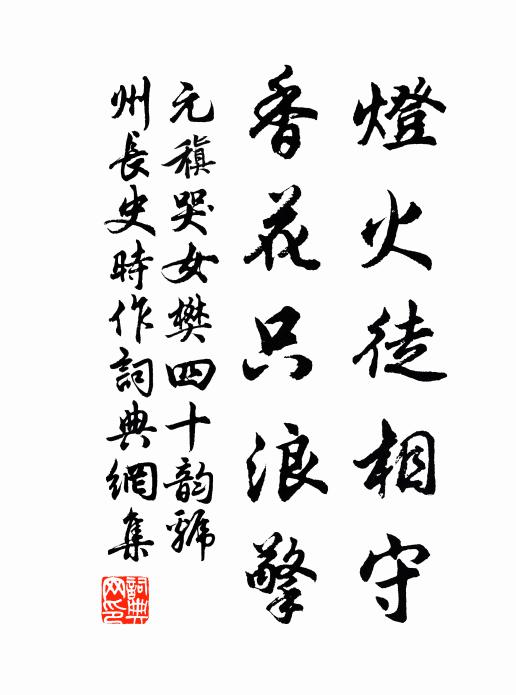 燈火徒相守
香花只浪擎
元稹哭女樊四十韵虢
州長史時作詞典網集
詞典網印